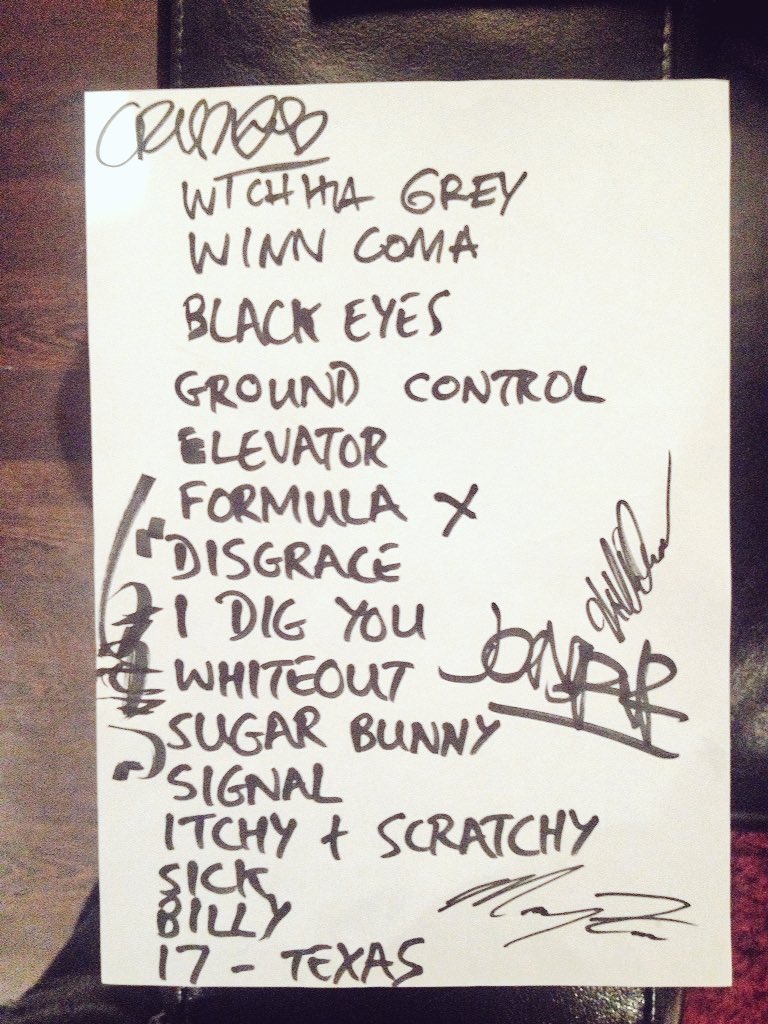 WTCHHA GREY
WINN COMA
BLACK EYES
GROUND CONTROL
ELEVATOR
FORMULA X
DISGRACE
I DIG YOU
WHITEOUT
SUGAR BUNNY
SIGNAL
ITCHY + SCRATCHY
SICK
BILLY
17 - TEXAS